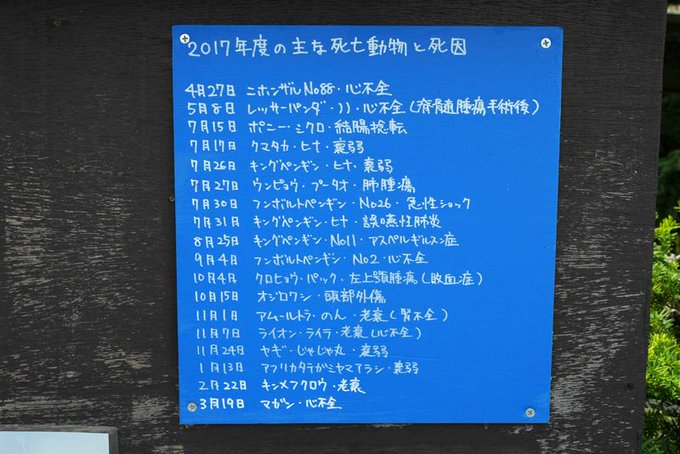 2017年度の主な死亡動物と死因
4月27日 ニホンザルNo88・心不全
5月8日 レッサーパンダ・リリ・心不全(脊髄腫瘍手術後)
7月15日 ポニー・ミクロ・結腸捻転
7月17日 クマタカ・ヒナ・衰弱
7月26日 キングペンギン・ヒナ・衰弱
7月27日 ウンピョウ・プータオ・肺腫瘍
7月30日 フンボルトペンギン・No26・急性ショック
7月31日 キングペンギン・ヒナ・誤嚥性肺炎
8月25日 キングペンギン・No11・アスペルギルスン症
9月4日 フンボルトペンギン・No2・心不全
10月4日 クロヒョウ・パック・左上顎腫瘍(敗血症)
10月15日 オジロワシ・頭部外傷
11月1日 アムールトラ・のん・老衰(腎不全)
11月7日 ライオン・ライラ・老衰(心不全)
11月24日 ヤギ・じゃじゃ丸・衰弱
1月13日 アフリカタテガミヤマアラシ・衰弱
2月22日 キンメフクロウ・老衰
3月19日 マガン・心不全